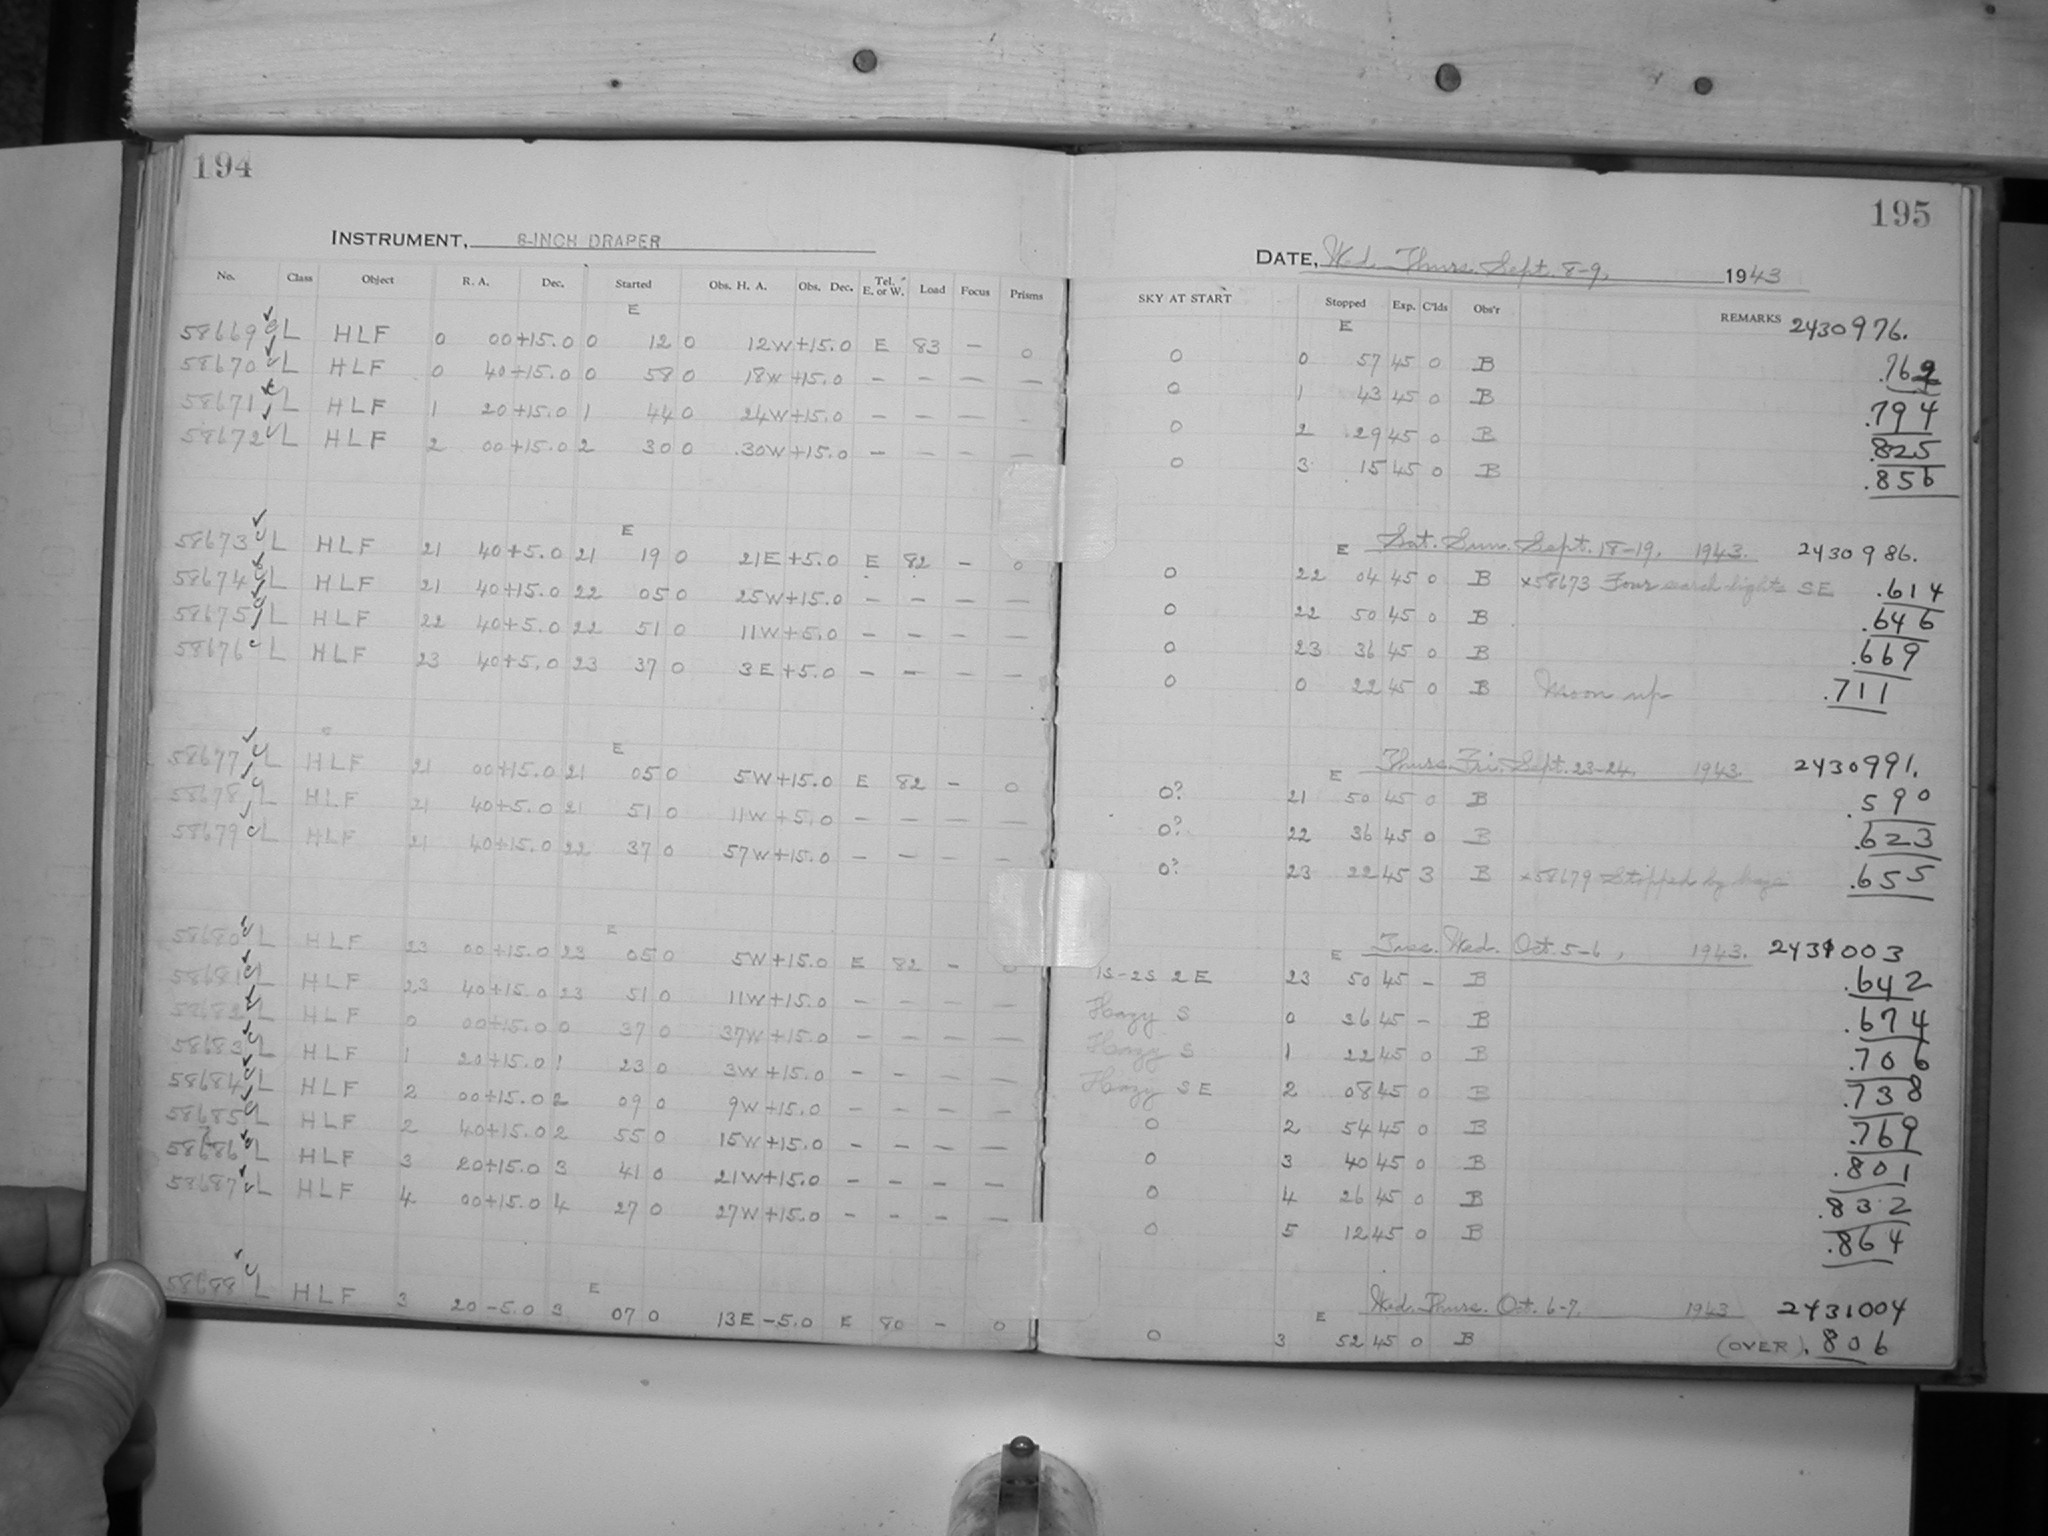 194
INSTRUMENT, 8-INCH DRAPER
No. Class Object R. A. Dec. Started Obs. H. A. Obs. Dec. Tel. E. or W. Load Focus Prisms
E
58669 L HLF 0 00 +15.0 0 12 0 12W +15.0 E 83 — 0
58670 L HLF 0 40 +15.0 0 58 0 18W +15.0 — — — —
58671 L HLF 1 20 +15.0 1 44 0 24W +15.0 — — — -
58672 L HLF 2 00 +15.0 2 30 0 30W +15.0 — — — —
E
58673 L HLF 21 40 +5.0 21 19 0 21E +5.0 E 82 — 0
58674 L HLF 21 40 +15.0 22 05 0 25W +15.0 — — — —
58675 L HLF 22 40 +5.0 22 51 0 11W +5.0 — — — —
58676 L HLF 23 40 +5.0 23 37 0 3E +5.0 — — — —
E
58677 L HLF 21 00 +15.0 21 05 0 5W +15.0 E 82 — 0
58678 L HLF 21 40 +5.0 21 51 0 11W +5.0 — — — —
58679 L HLF 21 40 +15.0 22 37 0 57W +15.0 — — — —
E
58680 L HLF 23 00 +15.0 23 05 0 5W +15.0 E 82 — 0
58681 L HLF 23 40 +15.0 23 51 0 11W +15.0 — — — —
58682 L HLF 0 00 +15.0 0 37 0 37W +15.0 — — — —
58683 L HLF 1 20 +15.0 1 23 0 3W +15.0 — — — —
58684 L HLF 2 00 +15.0 2 09 0 9W +15.0 — — — —
58685 L HLF 2 40 +15.0 2 55 0 15W +15.0 — — — —
58686 L HLF 3 20 +15.0 3 41 0 21W +15.0 — — — —
58687 L HLF 4 00 +15.0 4 27 0 27W +15.0 — — — —
E
58688 L HLF 3 20 -5.0 3 07 0 13E -5.0 E 80 — 0
195
DATE, Wed. Thurs. Sept. 8-9, 1943
SKY AT START Stopped Exp. C'lds Obs'r REMARKS 2430976.
E
0 0 57 45 0 B .762
0 1 43 45 0 B .794
0 2 29 45 0 B .825
0 3 15 45 0 B .856
E Sat. Sun. Sept. 18-19, 1943. 2430986.
0 22 04 45 0 B ×58673 Four search lights SE .614
0 22 50 45 0 B .646
0 23 36 45 0 B .669
0 0 22 45 0 B Moon up .711
E Thurs. Fri. Sept. 23-24, 1943. 2430991.
0? 21 50 45 0 B .590
0? 22 36 45 0 B .623
0? 23 22 45 3 B ×58679 Stopped by haze .655
E Tues. Wed. Oct. 5-6, 1943. 2431003
1S-2S 2E 23 50 45 — B .642
Hazy S 0 36 45 — B .674
Hazy S 1 22 45 0 B .706
Hazy SE 2 08 45 0 B .738
0 2 54 45 0 B .769
0 3 40 45 0 B .801
0 4 26 45 0 B .832
0 5 12 45 0 B .864
E Wed. Thurs. Oct. 6-7, 1943 2431004
0 3 52 45 0 B (OVER) .806